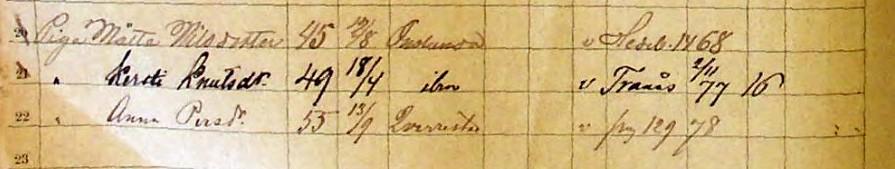 20 Piga Mätta Nilsdotter 45 19/8 Önslunda v Hedeb. 14 68
21 " Kersti Knutsdr. 49 18/4 ibm v Tranås 2/11 77 16
22 " Anna Persdr. 55 13/9 Qverrestad v pag 129 78
23